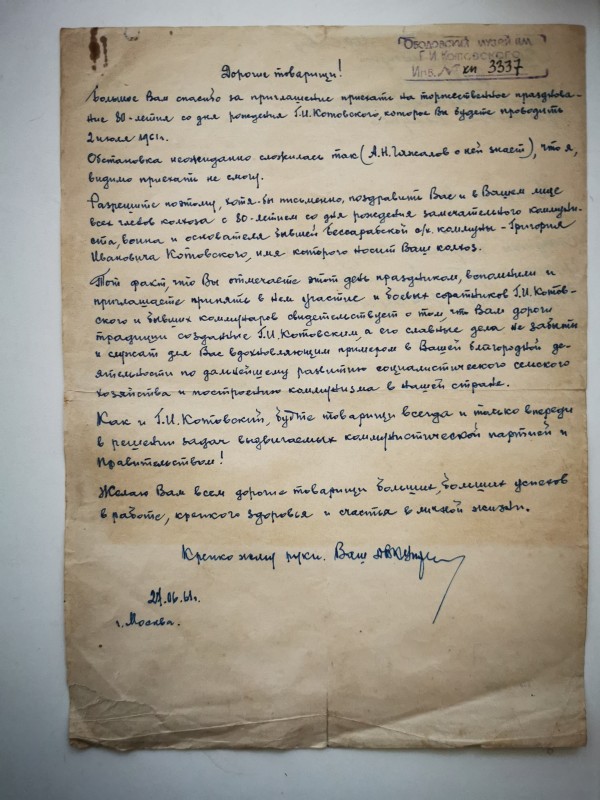 Ободовский музей им.
Г.И Котовского
Инв. № КП 3337
Дорогие товарищи!
Большое Вам спасибо за приглашение приехать на торжественное празднова-
ние 80-летия со дня рождения Г.И.Котовского, которое Вы будете проводить
2 июля 1961г.
Обстановка неожиданно сложилась так (А.Н. о ней знает), что я,
видимо приехать не смогу.
Разрешите поэтому, хотя-бы письменно, поздравить Вас и в Вашем лице
всех членов колхоза с 80-летием со дня рождения замечательного коммуни-
ста, воина и основателя бывшей бессарабской с/х. коммуны - Григория
Ивановича Котовского, имя которого носит Ваш колхоз.
Тот факт, что Вы отмечаете этот день праздником, вспомнили и
приглашаете принять в нем участие и боевых соратников Г.И.Котов-
ского и бывших коммунаров свидетельствует о том, что Вам дороги
традиции созданные Г.И.Котовским, а его славные дела не забыты
и служат для Вас вдохновляющим примером в Вашей благородной де-
ятельности по дальнейшему развитию социалистического сельского
хозяйства и построению коммунизма в нашей стране.
Как и Г.И.Котовский, будьте товарищи всегда и только впереди
в решении задач выдвигаемых коммунистической партией и
Правительством!
Желаю Вам всем дорогие товарищи больших, больших успехов
в работе, крепкого здоровья и счастья в личной жизни.
Крепко жму руки. Ваш
г. Москва.